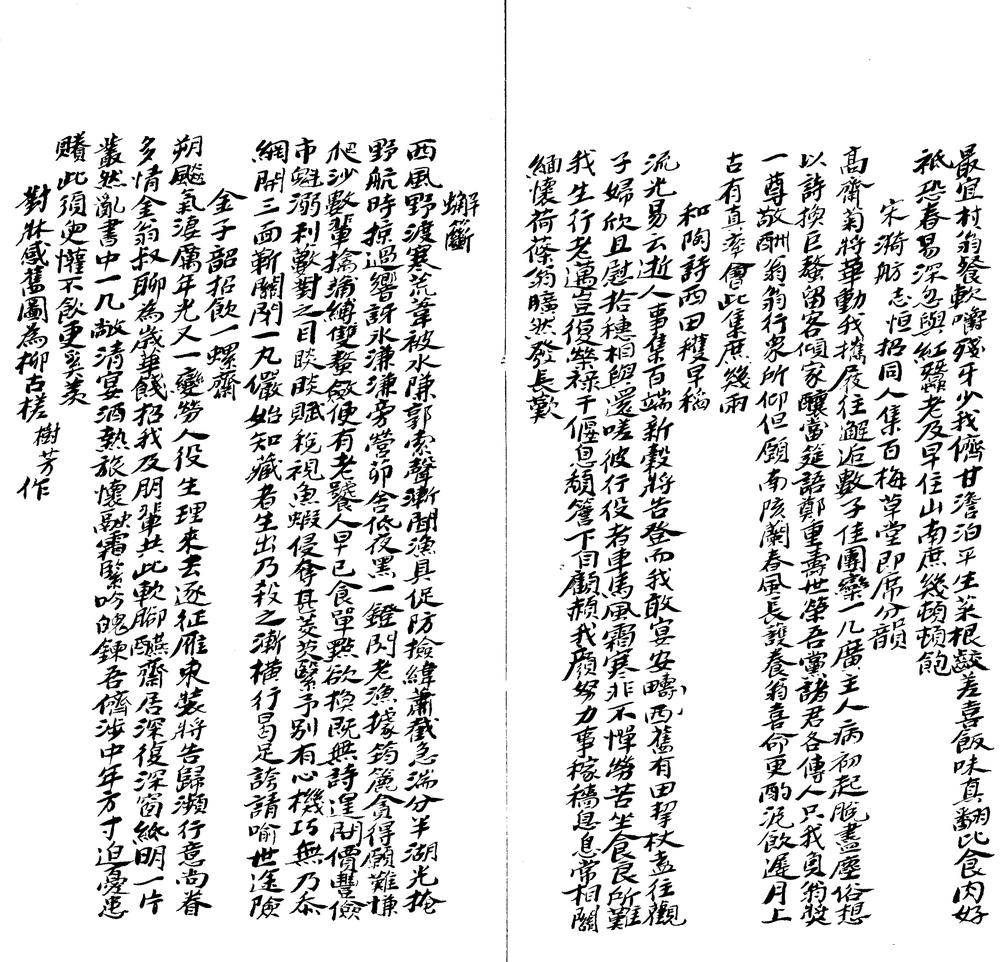 最宜村翁餐軟嚼殘牙少我儕甘澹泊平生菜根齩差喜飯味真翻比食肉好
祇恐春易深忽與紅鹽老及早住山南庶幾頓頓飽
宋漪舫志恒招同人集百梅草堂即席分韻
高齋菊將華動我攜屐往邂逅數子佳團欒一几廣主人病初起脫盡塵俗想
以詩換巨螯留客傾家釀當筵語鄭重壽世榮吾黨諸君各傳人只我負翁獎
一尊敬酬翁翁行衆所仰但願南陔蘭春風長護養翁喜命更酌泥飲遲月上
古有真率會此集庶幾兩
和陶詩西田穫早稻
流光易云逝人事集百端新穀將告登而我敢宴安疇西舊有田挈杖盍往觀
子婦欣且慰拾穗相與還嗟彼行役者車馬風霜寒非不憚勞苦坐食良所難
我生行老邁豈復榮祿干偃息頹簷下自顧赬我顏努力事稼穡息息常相關
緬懷荷蓧翁曠然發長歎
蠏籪
西風野渡寒荒葦被水陳郭索聲漸聞漁具促防撿緯蕭截急湍分半湖光掩
野航時掠過響訝水溓溓旁營茆舍低夜黑一鐙閃老漁據笱篼貪得願難慊
爬沙數輩擒痛縛雙螯斂便有老饕人早已食單點欲換既無詩遑問價豐儉
市蛙溺利藪對之目睒睒賦稅視魚蝦侵奪甚菼茨繄予別有心機巧無乃忝
網開三面嶄關閉一丸儼始知藏者生出乃殺之漸橫行曷足誇請喻世途險
金子韶招飲一螺齋
朔飈氣淒厲年光又一變勞人役生理來去逐征雁束裝將告歸瀕行意尚眷
多情金翁叔聊為歲華餞招我及朋輩共此軟腳醼齋居深復深窗紙明一片
叢然亂書中一几敞清宴酒熱旅懷融霜緊吟魄鍊吾儕涉中年方寸迫憂患
賺此須臾懽不飲更奚羨
對牀感舊圖為柳古槎樹芳作